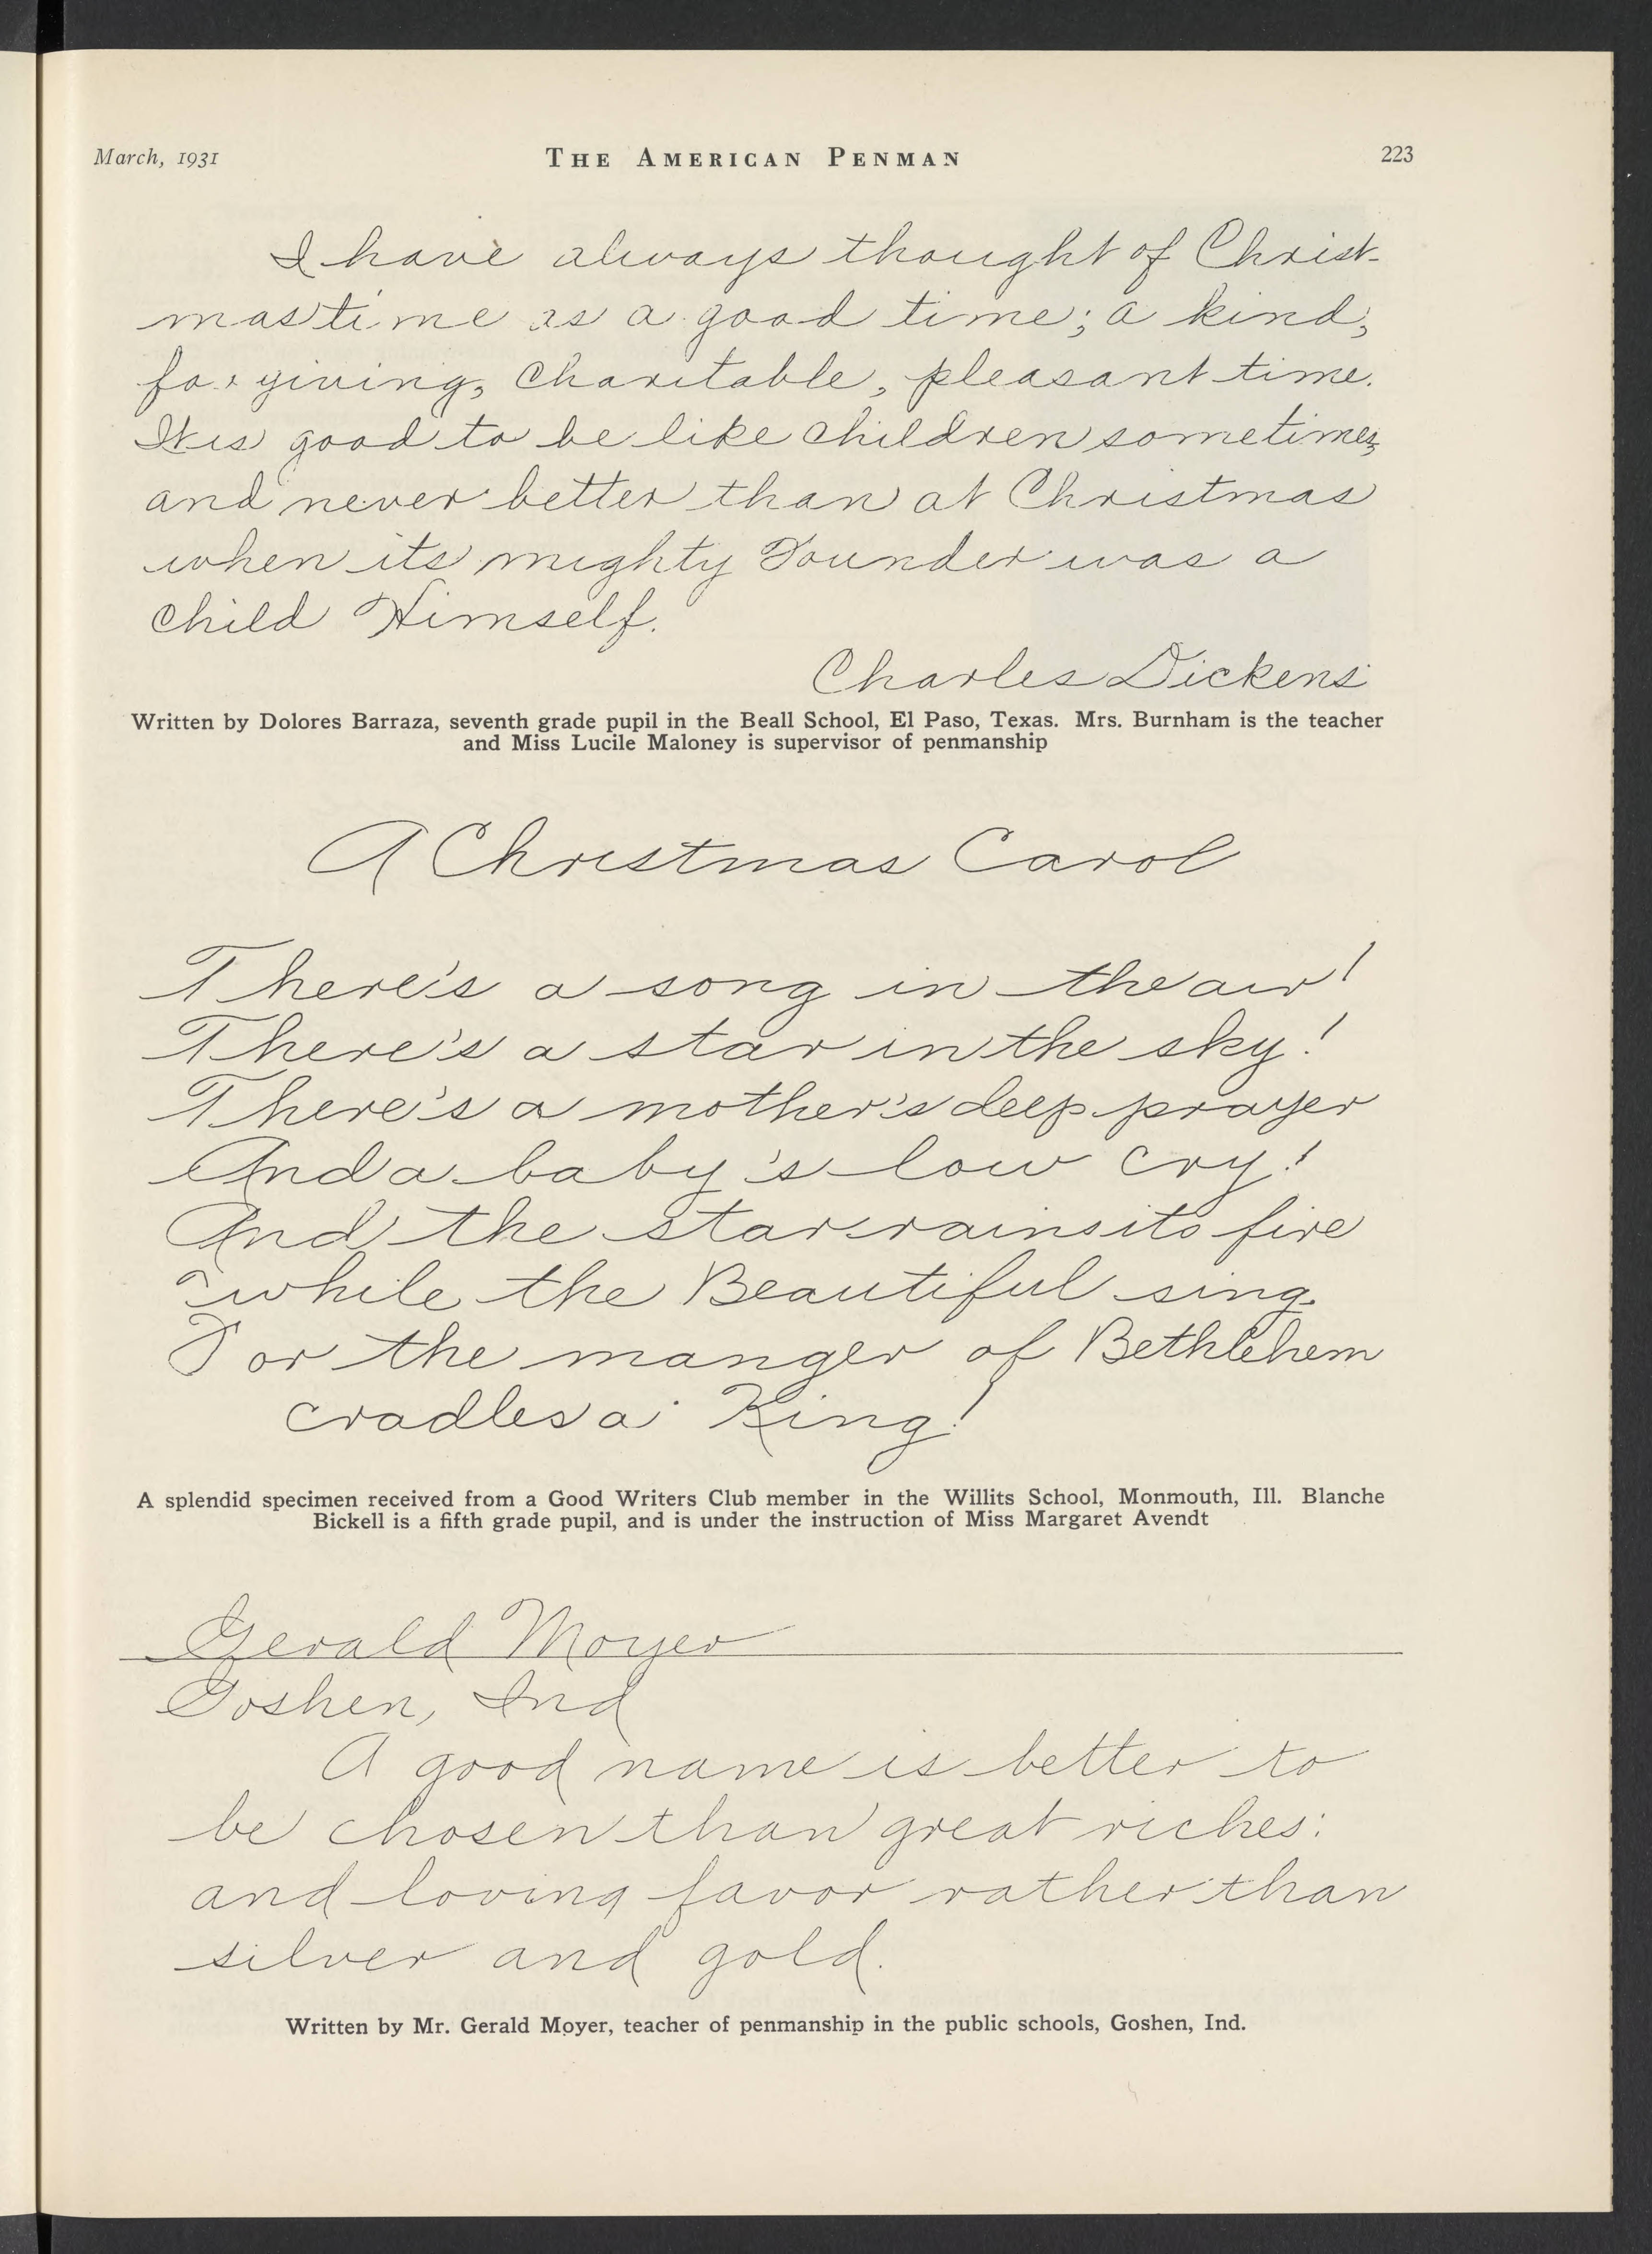 March, 1931 THE AMERICAN PENMAN 223
I have always thought of Christ-
mas time as a good time; a kind,
forgiving, charitable, pleasant time.
It is good to be like children sometimes,
and never better than at Christmas
when its mighty Founder was a
child Himself.
Charles Dickens
Written by Dolores Barraza, seventh grade pupil in the Beall School, El Paso, Texas. Mrs. Burnham is the teacher
and Miss Lucile Maloney is supervisor of penmanship
A Christmas Carol
There's a song in the air!
There's a star in the sky!
There's a mother's deep prayer
And a baby's low cry!
And the star rains its fire
while the Beautiful sing.
For the manger of Bethlehem
cradles a King!
A splendid specimen received from a Good Writers Club member in the Willits School, Monmouth, Ill. Blanche
Bickell is a fifth grade pupil, and is under the instruction of Miss Margaret Avendt
Gerald Moyer
Goshen, Ind
A good name is better to
be chosen than great riches:
and loving favor rather than
silver and gold.
Written by Mr. Gerald Moyer, teacher of penmanship in the public schools, Goshen, Ind.